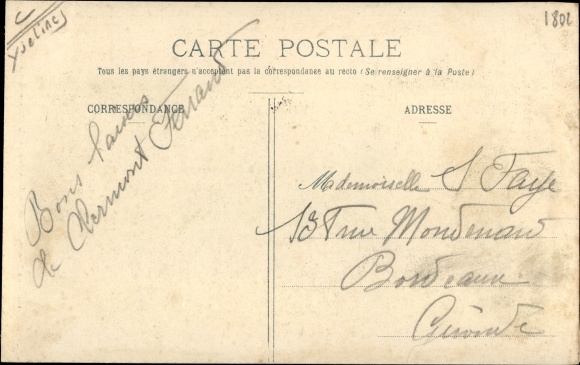 C
Yvelines
1802
CARTE POSTALE
Tous les pays étrangers n'acceptent pas la correspondance au recto (Se renseigner à la Poste)
CORRESPONDANCE
ADRESSE
Bons baisers
de Clermont Ferrand
Mademoiselle S Faye
137 rue Mondenard
Bordeaux
Gironde